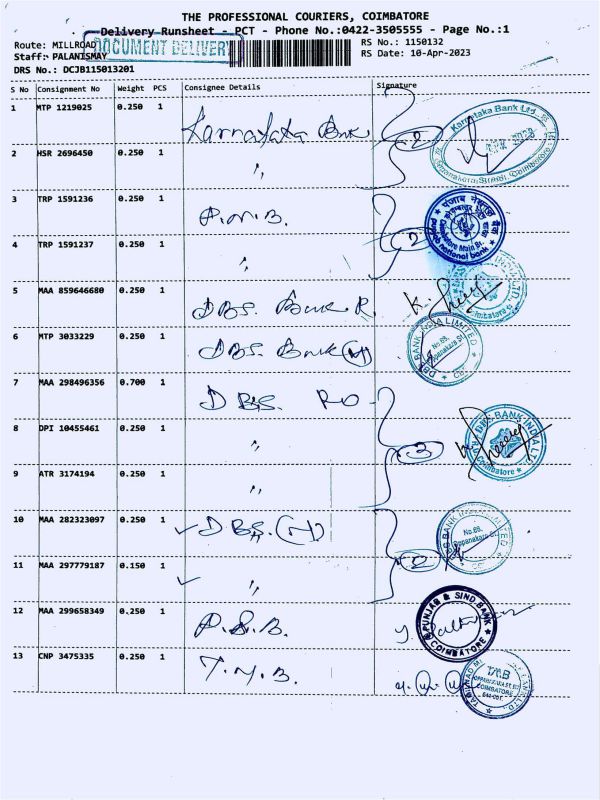 THE PROFESSIONAL COURIERS, COIMBATORE
Delivery Runsheet - PCT - Phone No.:0422-3505555 - Page No.:1
Route: MILLROAD
DOCUMENT DELIVERY
RS No.: 1150132
Staff: PALANISMAY
RS Date: 10-Apr-2023
DRS No.: DCJB115013201
S No Consignment No Weight PCS Consignee Details Signature
1 MTP 1219025 0.250 1 Karnataka Bank
2
Karnataka Bank Ltd.
2 HSR 2696450 0.250 1 ,,
3 TRP 1591236 0.250 1 P.N.B.
2
पंजाब नैशनल बैंक
Coimbatore Main Br.
punjab national bank
4 TRP 1591237 0.250 1 ,,
5 MAA 859646680 0.250 1 DBS. Bank R
6 MTP 3033229 0.250 1 DBS. Bank (M)
DBS BANK INDIA LIMITED
No.68,
Oppanakara St.
7 MAA 298496356 0.700 1 DBS. RO
8 DPI 10455461 0.250 1 ,,
3
DBS BANK INDIA LTD.
Coimbatore
9 ATR 3174194 0.250 1 ,,
10 MAA 282323097 0.250 1 DBS. (M)
DBS BANK INDIA LIMITED
No.68,
Oppanakara St.
11 MAA 297779187 0.150 1 ,,
2
12 MAA 299658349 0.250 1 P.S.B.
PUNJAB & SIND BANK
COIMBATORE
13 CNP 3475335 0.250 1 T.M.B.
TMB
OPPANAKARA ST. BR
COIMBATORE